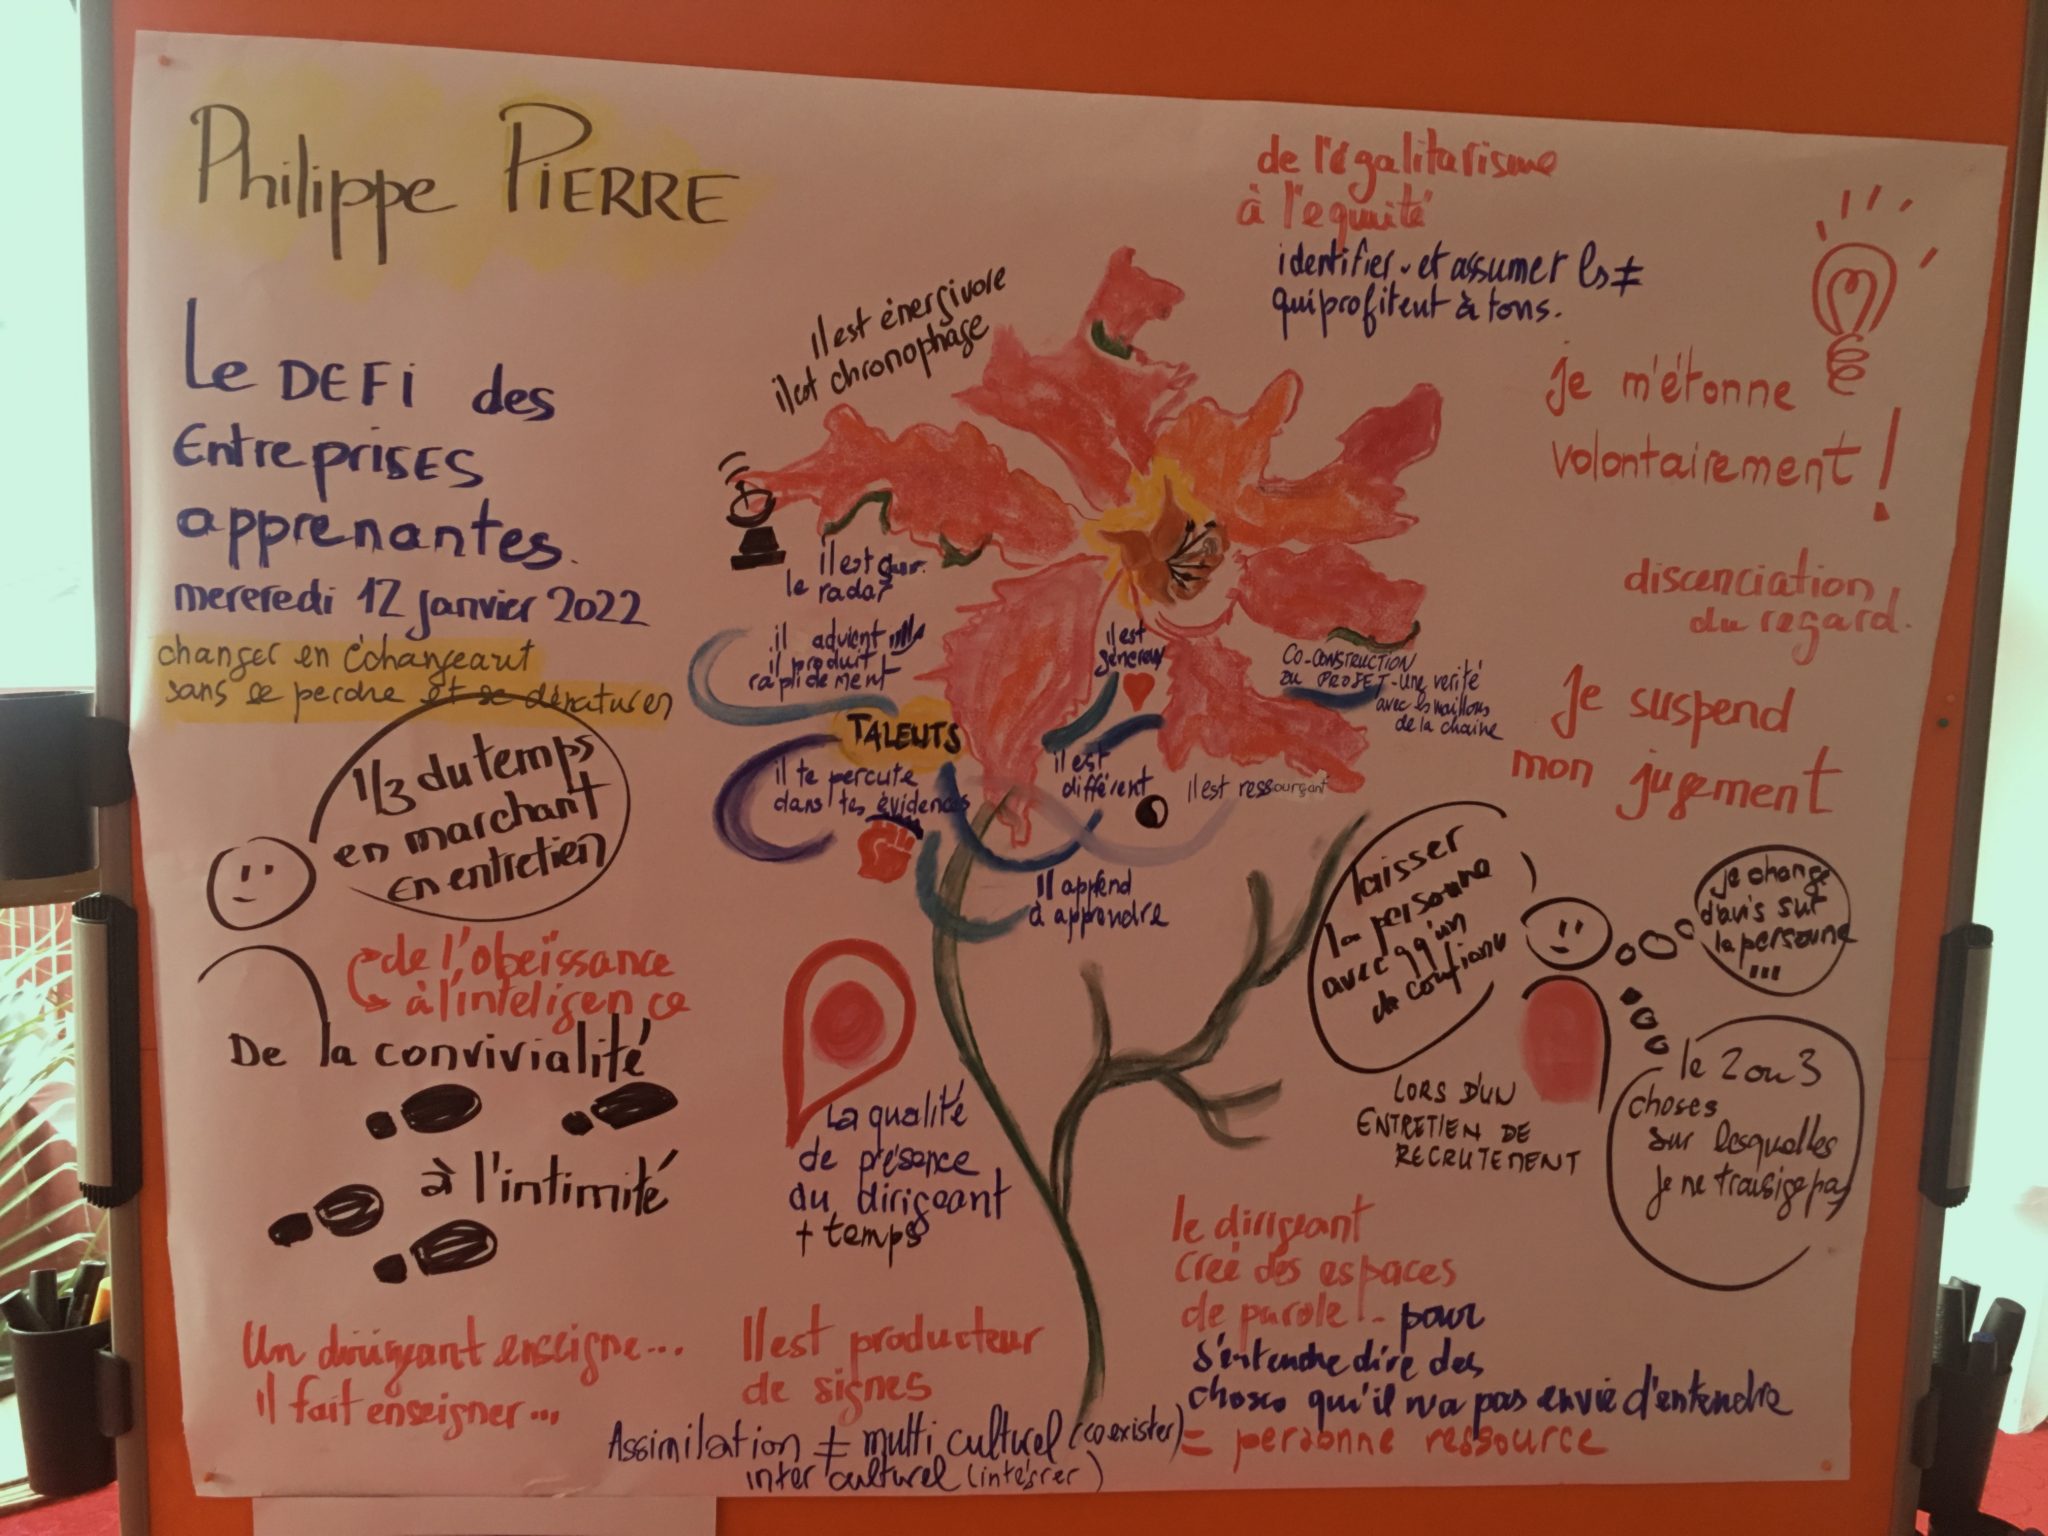 Philippe PIERRE
Le DEFI des
Entreprises
apprenantes.
mercredi 12 janvier 2022
changer en échangeant
sans se perdre et se dénaturer
1/3 du temps
en marchant
en entretien
de l'obeïssance
à l'inteligence
De la convivialité
à l'intimité
Un dirigeant enseigne...
il fait enseigner...
Il est énergivore
il est chronophage
il est sur
le radar
il advient
il produit
rapidement
TALENTS
il te percute
dans tes évidences
il est
généreux
il est
différent
il est ressourçant
Il apprend
à apprendre
CO-CONSTRUCTION
DU PROJET - une verité
avec les maillons
de la chaine
La qualité
de présence
du dirigeant
+ temps
Il est producteur
de signes
Assimilation ≠ multi culturel (coexister)
inter culturel (intégrer)
de l'égalitarisme
à l'équité
identifier et assumer les ≠
qui profitent à tous.
je m'étonne
volontairement !
discenciation
du regard.
Je suspend
mon jugement
laisser
la personne
avec qq'un
de confiance
je change
d'avis sur
la personne
...
le 2 ou 3
choses
sur lesquelles
je ne transige pas
LORS D'UN
ENTRETIEN DE
RECRUTEMENT
le dirigeant
crée des espaces
de parole ! - pour
s'entendre dire des
choses qu'il n'a pas envie d'entendre
= personne ressource